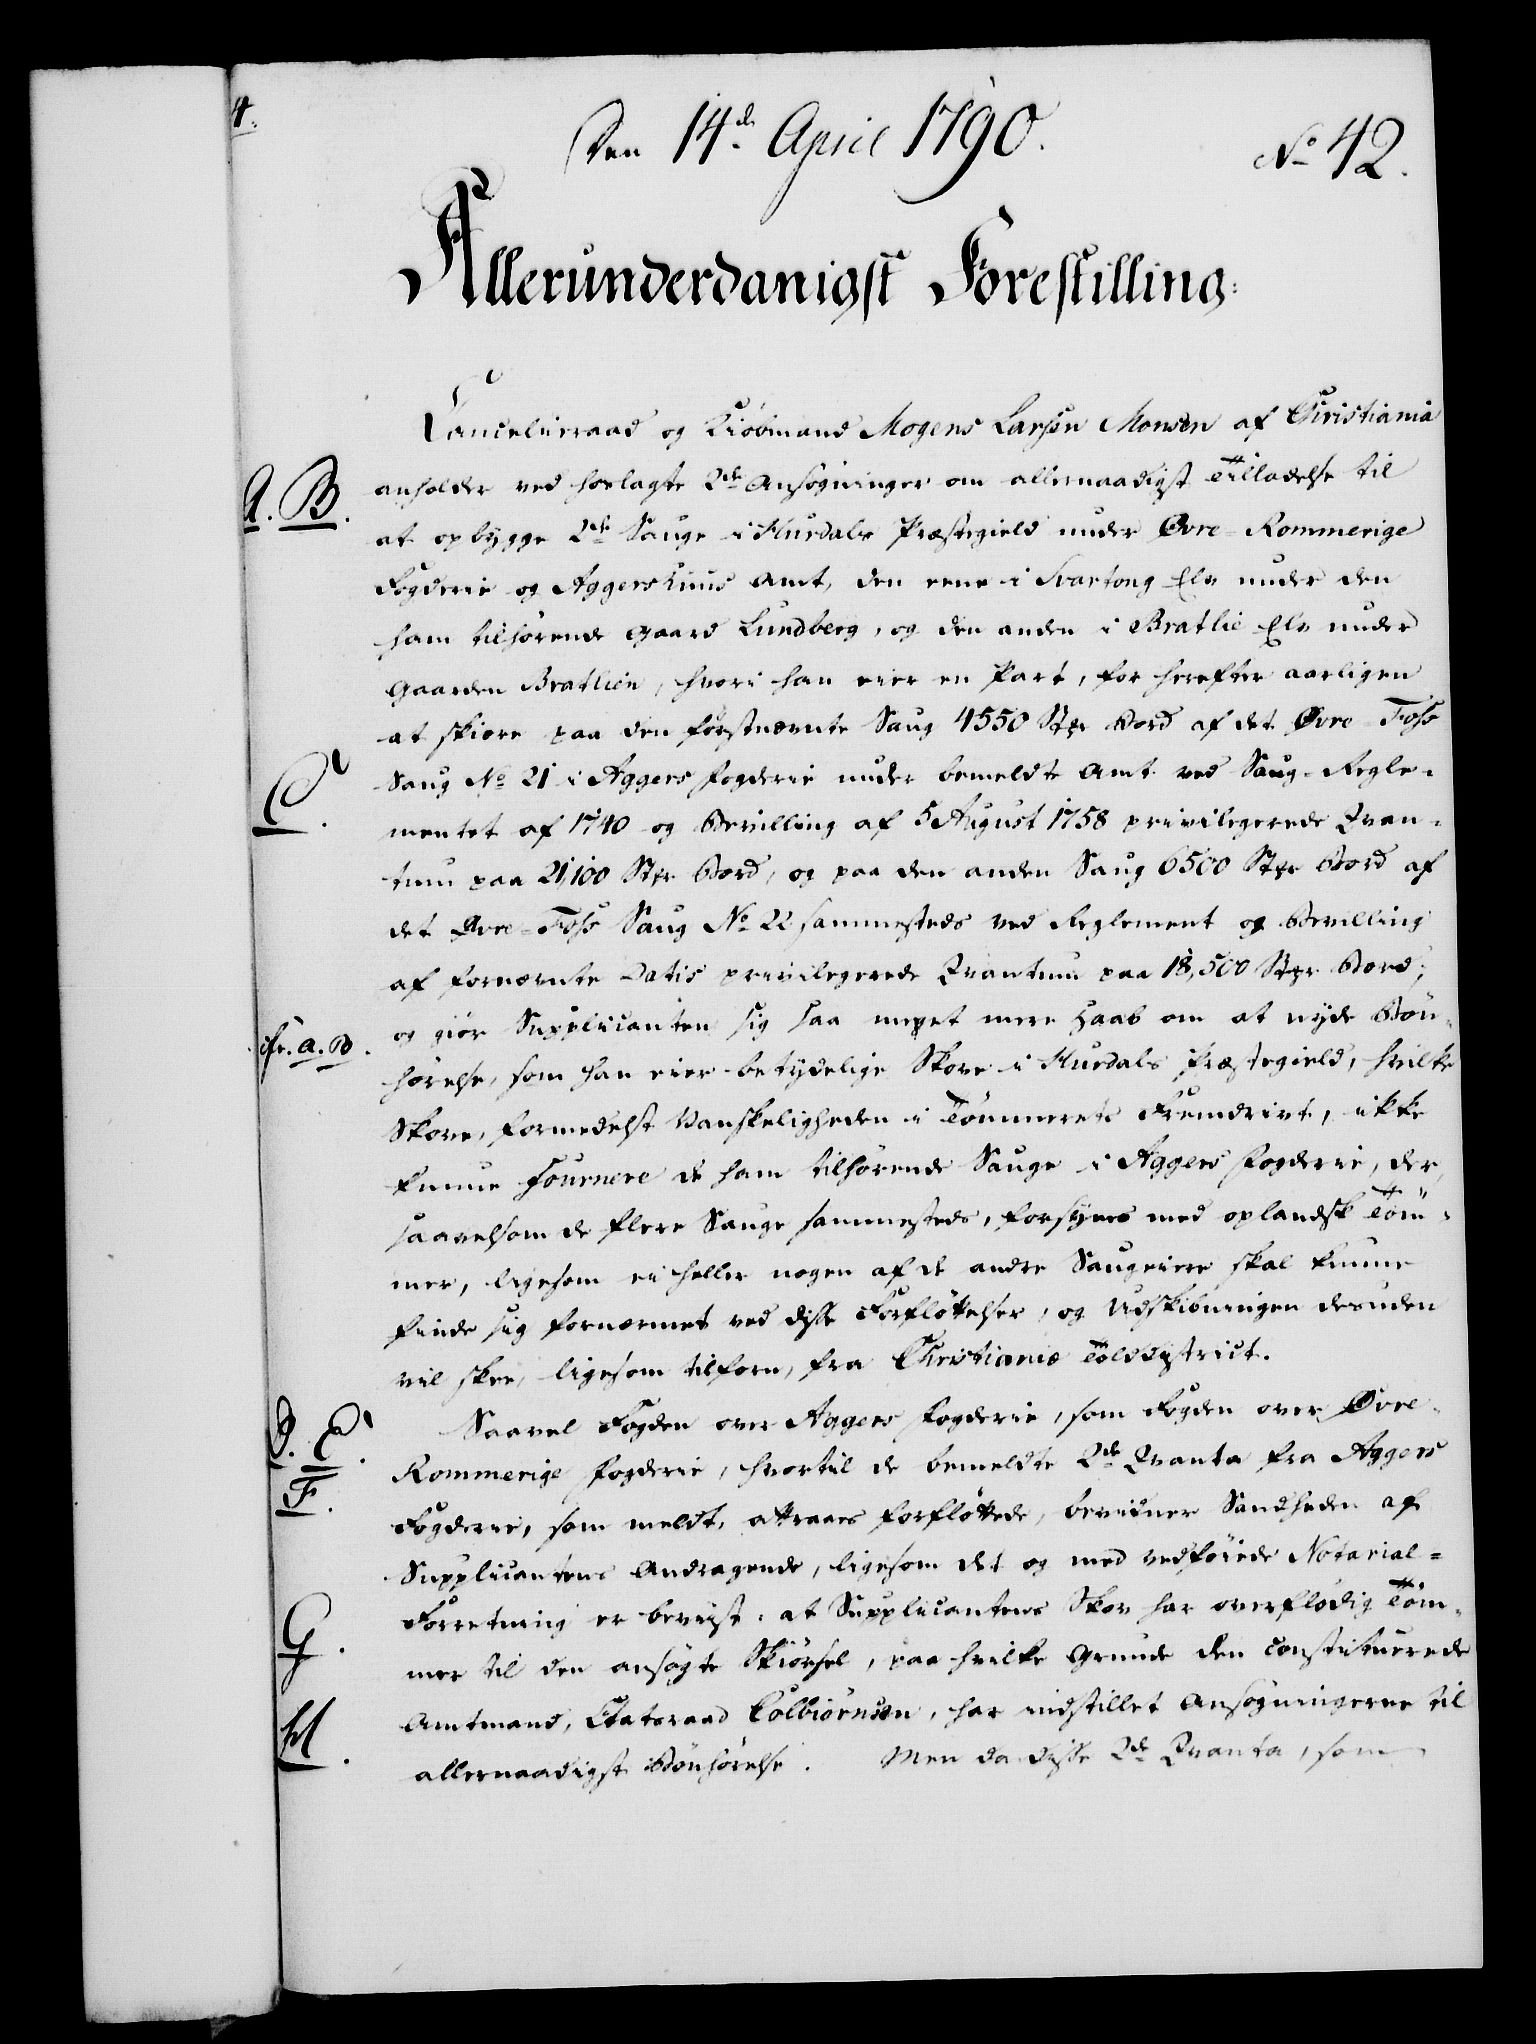 4.
Den 14de April 1790.
No 42.
Allerunderdanigst Forestilling:
Cancelieraad og Kiöbmand Mogens Larsen Monsen af Christiania
A. B. anholder ved hoslagte 2de Ansøgninger om allernaadigst Tilladelse til
at opbygge 2de Sauge i Hurdals Præstegield under Øvre-Rommerige
Fogderie og Aggershuus Amt, den eene i Svartong Elv under den
ham tilhørende Gaard Lundberg, og den anden i Bratlie Elv under
Gaarden Bratlien, hvori han eier en Part, for herefter aarligen
at skiere paa den førstnævnte Saug 4550 Stkr Bord af det Øvre-Foss
C. Saug No 21 i Aggers Fogderie under bemeldte Amt ved Saug-Regle-
mentet af 1740 og Bevilling af 5 August 1758 privilegerede Qvan-
tum paa 21,100 Stkr Bord, og paa den anden Saug 6500 Stkr Bord af
det Øvre-Foss Saug No 22 sammesteds ved Reglement og Bevilling
af fornævnte Datis privilegerede Qvantum paa 18,500 Stkr Bord;
cfr. A. B. og giör Supplicanten sig saa meget mere Haab om at nyde Bön-
hörelse, som han eier betydelige Skove i Hurdals Præstegield, hvilke
Skove, formedelst Vanskeligheden i Tömmerets Fremdrivt, ikke
kunne fournere de ham tilhörende Sauge i Aggers Fogderie, der,
saavelsom de flere Sauge sammesteds, forsynes med oplandsk Töm-
mer, ligesom ei heller nogen af de andre Saugeiere skal kunne
finde sig fornærmet ved disse Forflöttelser, og Udskibningen desuden
vil skee, ligesom tilforn, fra Christianiæ Tolddistrict.
D. E. Saavel Fogden over Aggers Fogderie, som Fogden over Øvre-
F. Rommerige Fogderie, hvortil de bemeldte 2de Qvanta fra Aggers
Fogderie, som meldt, attraaes forflöttede, bevidner Sandheden af
Supplicantens Andragende, ligesom det og med vedföiede Notarial-
G. Forretning er beviist, at Supplicantens Skov har overflödig Töm-
mer til den ansögte Skiörsel, paa hvilke Grunde den constituerede
H. Amtmand, Etatsraad Colbiörnsen, har indstillet Ansögningerne til
allernaadigst Bönhörelse. Men da disse 2de Qvanta, som